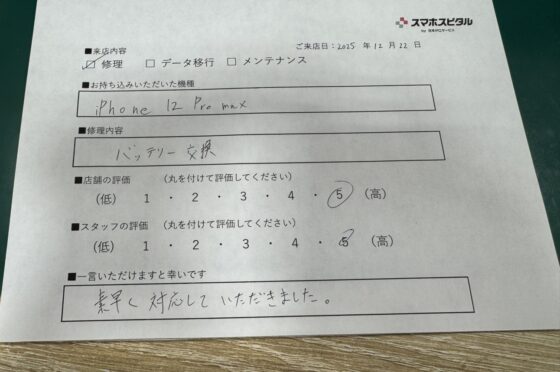 スマホスピタル
ご来店日：2025 年 12 月 22 日
■来店内容
☑ 修理 □ データ移行 □ メンテナンス
■お持ち込みいただいた機種
iPhone 12 Pro max
■修理内容
バッテリー交換
■店舗の評価 （丸を付けて評価してください）
（低） 1 ・ 2 ・ 3 ・ 4 ・ 5 （高）
■スタッフの評価 （丸を付けて評価してください）
（低） 1 ・ 2 ・ 3 ・ 4 ・ 5 （高）
■一言いただけますと幸いです
素早く対応していただきました。